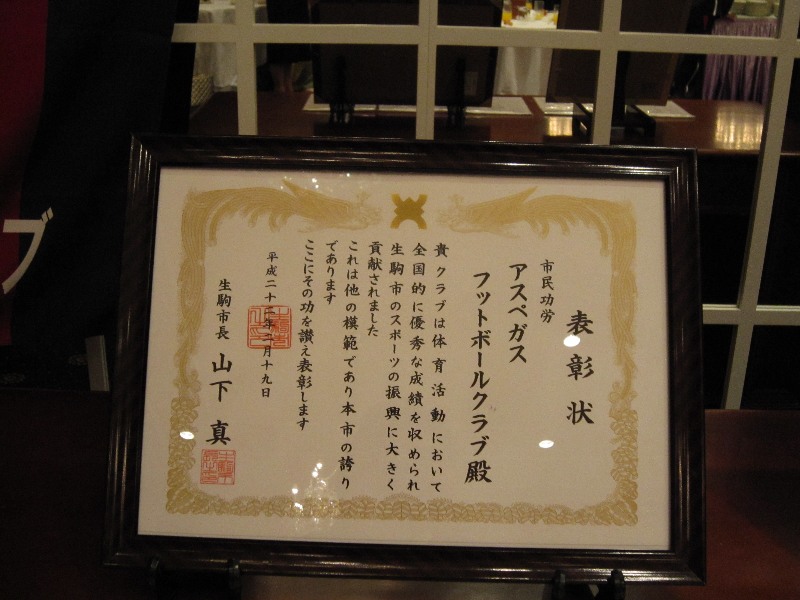 表彰状
市民功労
アスペガス
フットボールクラブ殿
貴クラブは体育活動において
全国的に優秀な成績を収められ
生駒市のスポーツの振興に大きく
貢献されました
これは他の模範であり本市の誇り
であります
ここにその功を讃え表彰します
平成二十二年二月十九日
生駒市長 山下真
ブ